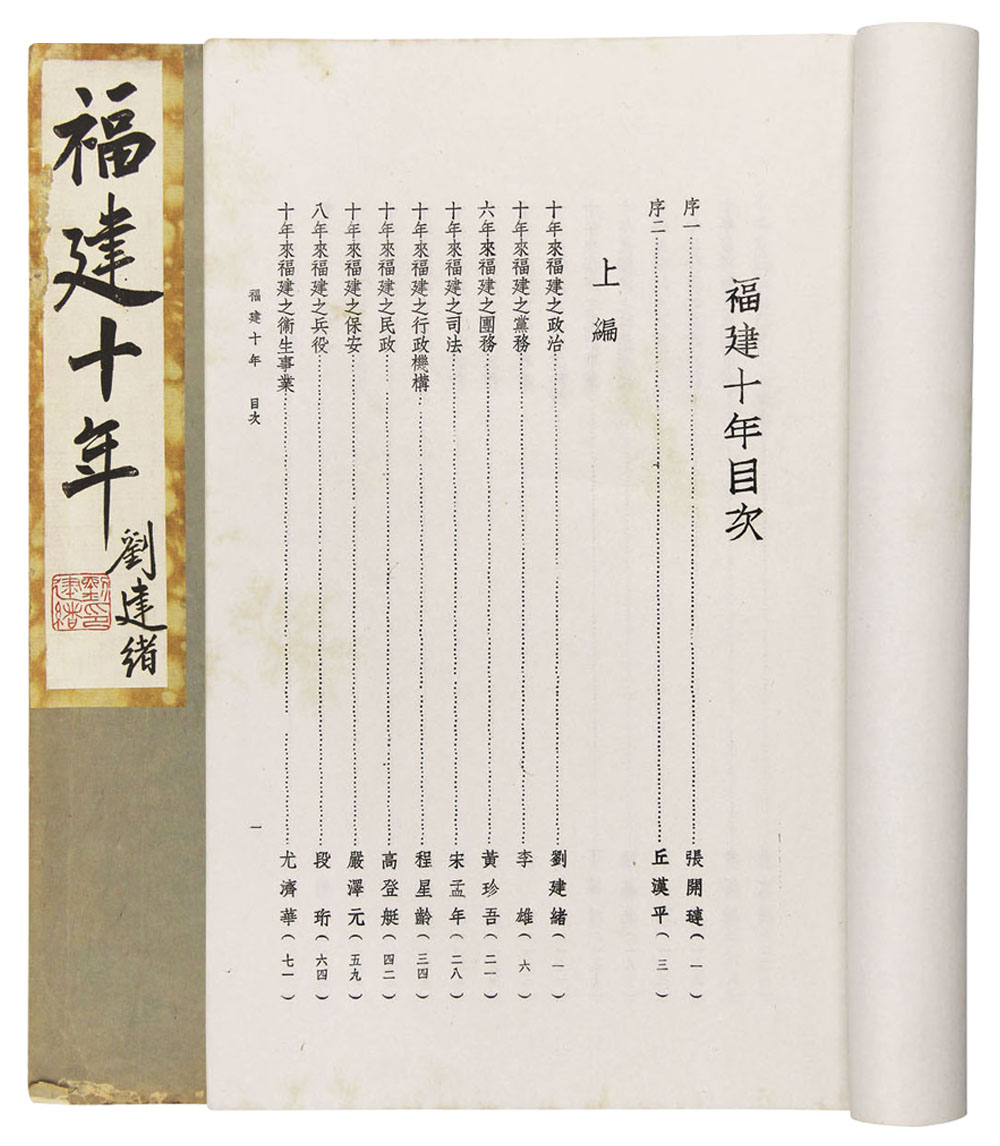 福建十年
劉建緒
劉印建緒
福建十年目次
序一……張開璉(一)
序二……丘漢平(三)
上編
十年來福建之政治……劉建緒(一)
十年來福建之黨務……李雄(六)
六年來福建之團務……黃珍吾(二一)
十年來福建之司法……宋孟年(二八)
十年來福建之行政機構……程星齡(三四)
十年來福建之民政……高登艇(四二)
十年來福建之保安……嚴澤元(五九)
八年來福建之兵役……段珩(六四)
十年來福建之衞生事業……尤濟華(七一)
福建十年 目次
一